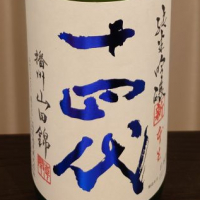 純米吟醸
十四代
播州山田錦